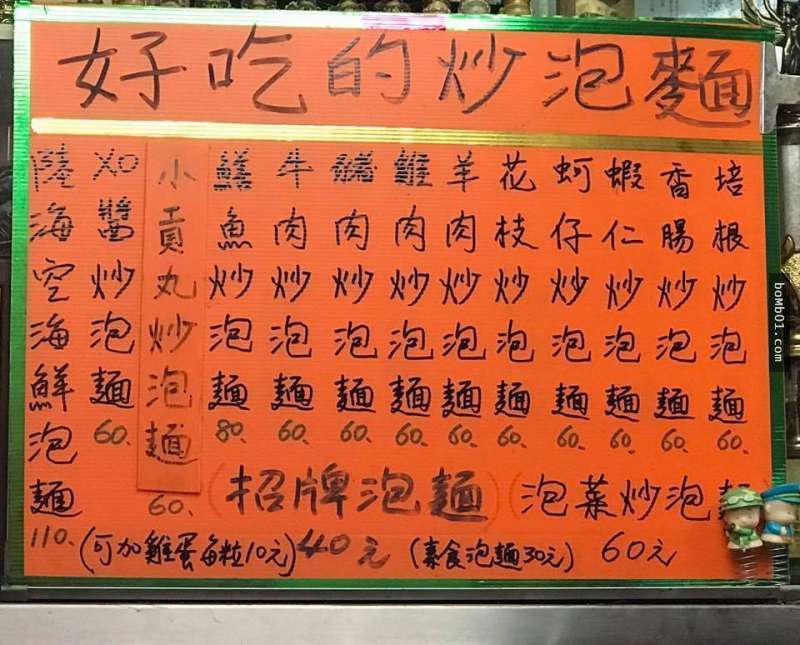 好吃的炒泡麵
培根炒泡麵 60.
香腸炒泡麵 60.
蝦仁炒泡麵 60.
蚵仔炒泡麵 60.
花枝炒泡麵 60.
羊肉炒泡麵 60.
雞肉炒泡麵 60.
豬肉炒泡麵 60.
牛肉炒泡麵 60.
鱔魚炒泡麵 80.
小貢丸炒泡麵 60.
XO醬炒泡麵 60.
陸海空海鮮泡麵 110.
(招牌泡麵) (泡菜炒泡
(可加雞蛋每粒10元) 40元 (素食泡麵30元) 60元
boMb01.com